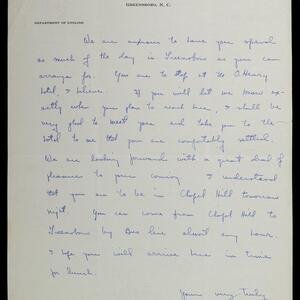 GREENSBORO, N. C.
DEPARTMENT OF ENGLISH
We are anxious to have you spend
as much of the day in Greensboro as you can
arrange for. You are to stop at the O. Henry
Hotel, I believe. If you will let me know ex-
actly when you plan to reach here, I shall be
very glad to meet you and take you to the
hotel to see that you are comfortably settled.
We are looking forward with a great deal of
pleasure to your coming I understand
that you are to be in Chapel Hill tomorrow
night You can come from Chapel Hill to
Greensboro by Bus line almost any hour.
I hope you will arrive here in time
for lunch.
Yours very truly